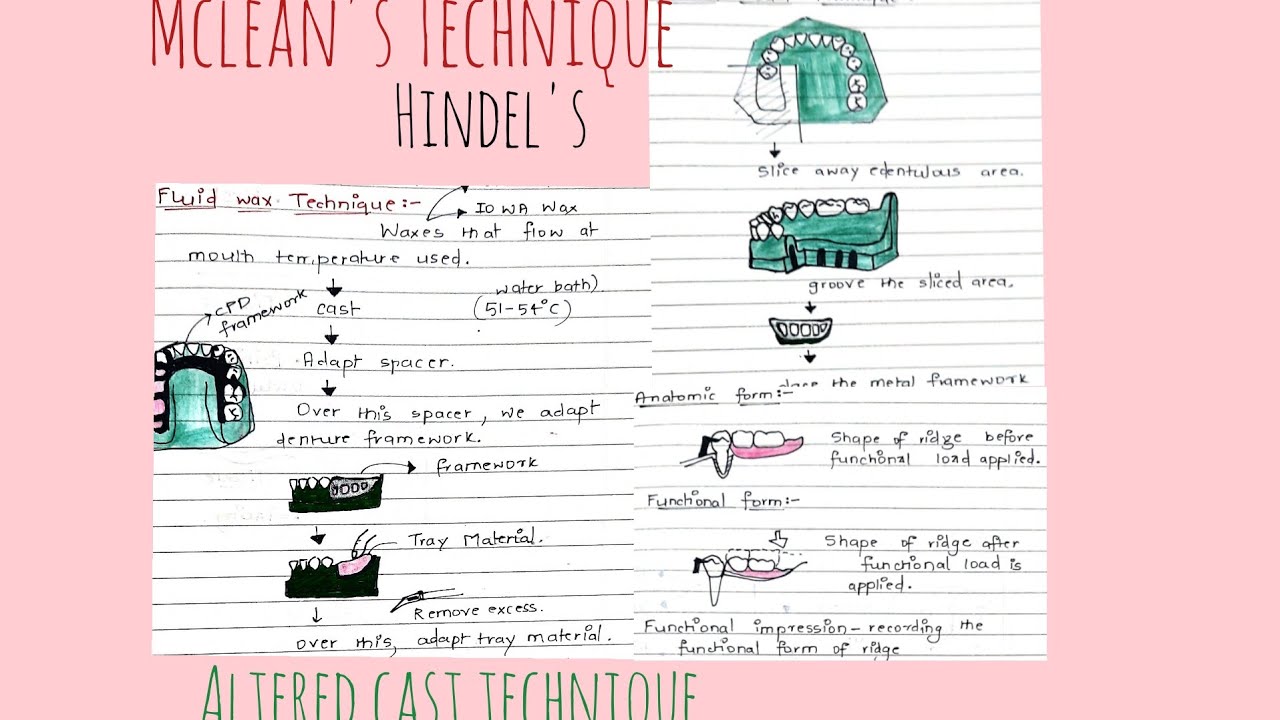 MCLEAN'S TECHNIQUE
HINDEL'S
Fluid wax Technique:-
IOWA Wax
Waxes that flow at
mouth temperature used.
CPD
framework
cast
water bath)
(51-54°C)
Adapt spacer.
Over this spacer, we adapt
denture framework.
framework
Tray Material.
Remove excess.
over this, adapt tray material.
Slice away edentulous area.
groove the sliced area.
the metal framework
Anatomic form:-
Shape of ridge before
functional load applied.
Functional form:-
Shape of ridge after
functional load is
applied.
Functional impression - recording the
functional form of ridge
ALTERED CAST TECHNIQUE